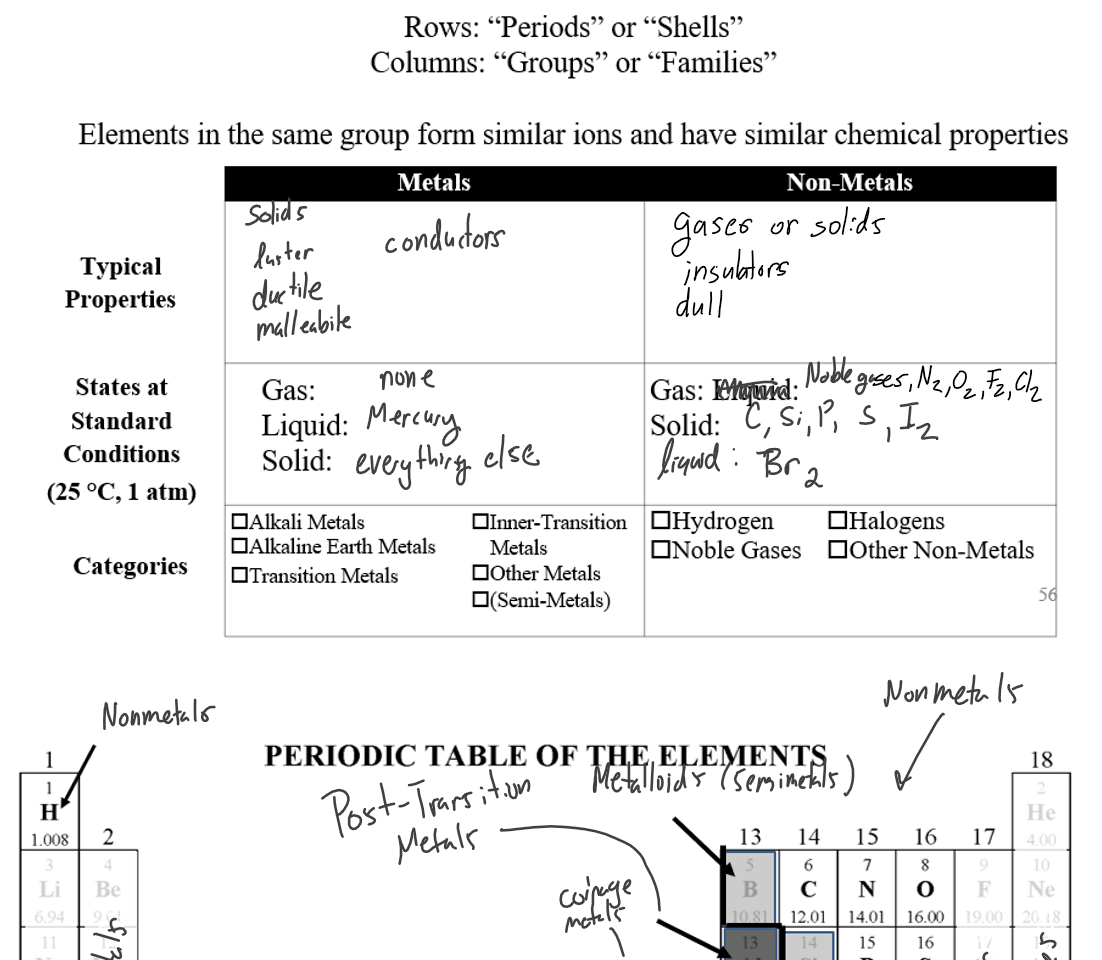 Rows: “Periods” or “Shells”
Columns: “Groups” or “Families”
Elements in the same group form similar ions and have similar chemical properties
Metals Non-Metals
Typical Properties
Solids
luster conductors
ductile
malleabile
gases or solids
insulators
dull
States at
Standard
Conditions
(25 °C, 1 atm)
Gas: none
Liquid: Mercury
Solid: everything else
Gas: Noble gases, N2, O2, F2, Cl2
Solid: C, Si, P, S, I2
liquid: Br2
Categories
☐Alkali Metals
☐Alkaline Earth Metals
☐Transition Metals
☐Inner-Transition
Metals
☐Other Metals
☐(Semi-Metals)
☐Hydrogen ☐Halogens
☐Noble Gases ☐Other Non-Metals
56
Nonmetals
Nonmetals
PERIODIC TABLE OF THE ELEMENTS
Post-Transition
Metals
Metalloids (semimetals)
coinage
metals
1 18
1 2
H He
1.008 2 13 14 15 16 17 4.00
3 4 5 6 7 8 9 10
Li Be B C N O F Ne
6.94 10.81 12.01 14.01 16.00 19.00 20.18
11 13 14 15 16